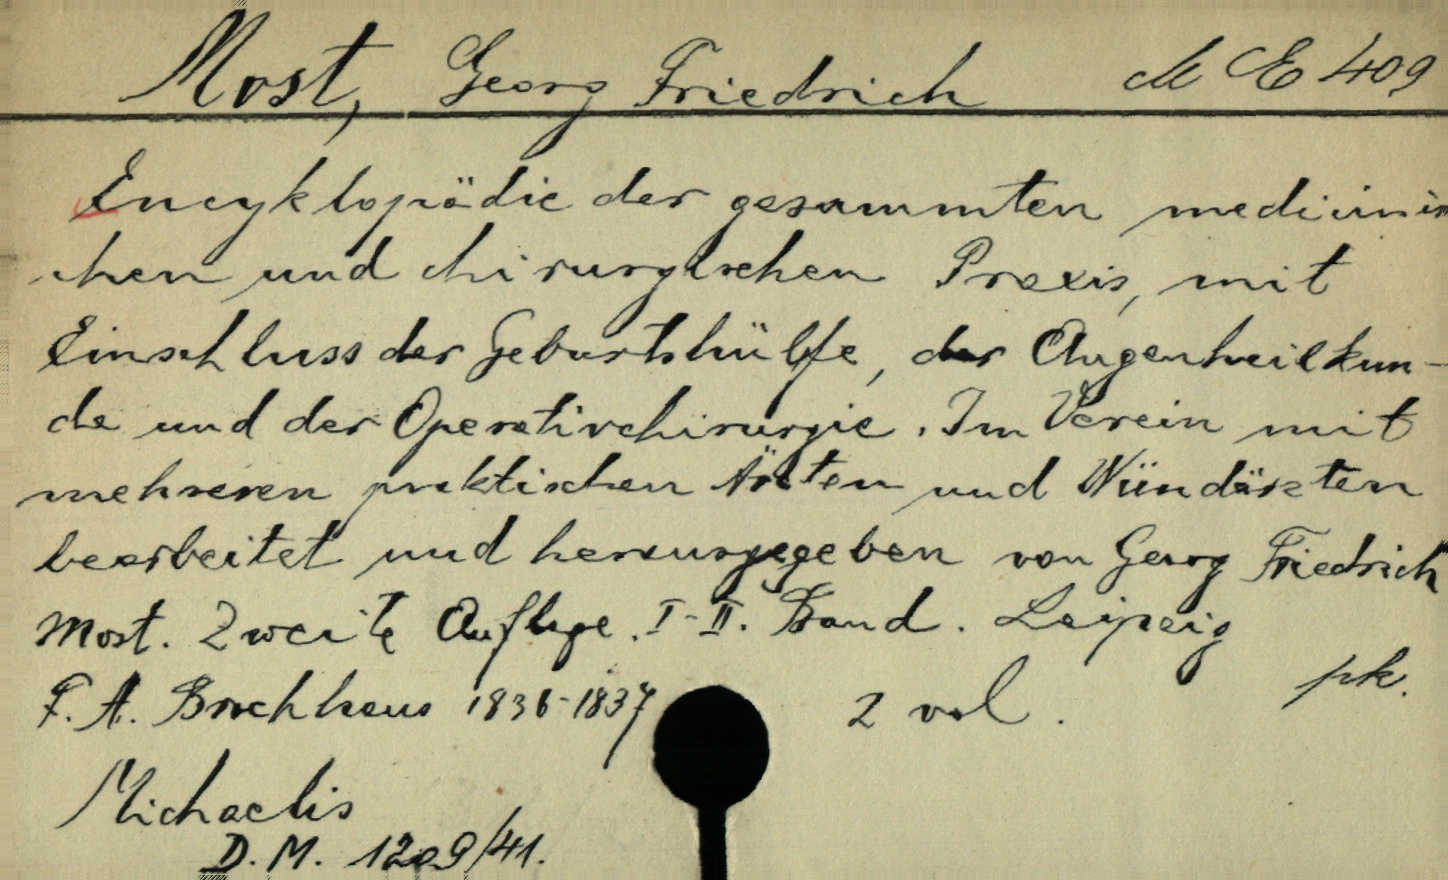 Most, Georg Friedrich M E 409
Encyklopädie der gesammten medicinis
chen und chirurgischen Praxis, mit
Einschluss der Geburtshülfe, der Augenheilkun-
de und der Operativchirurgie. Im Verein mit
mehreren praktischen Ärzten und Wündärzten
bearbeitet und herausgegeben von Georg Friedrich
Most. Zweite Auflage. I-II. Band. Leipzig
F. A. Brockhaus 1836-1837 2 vol. pk.
Michaelis
D. M. 1209/41.